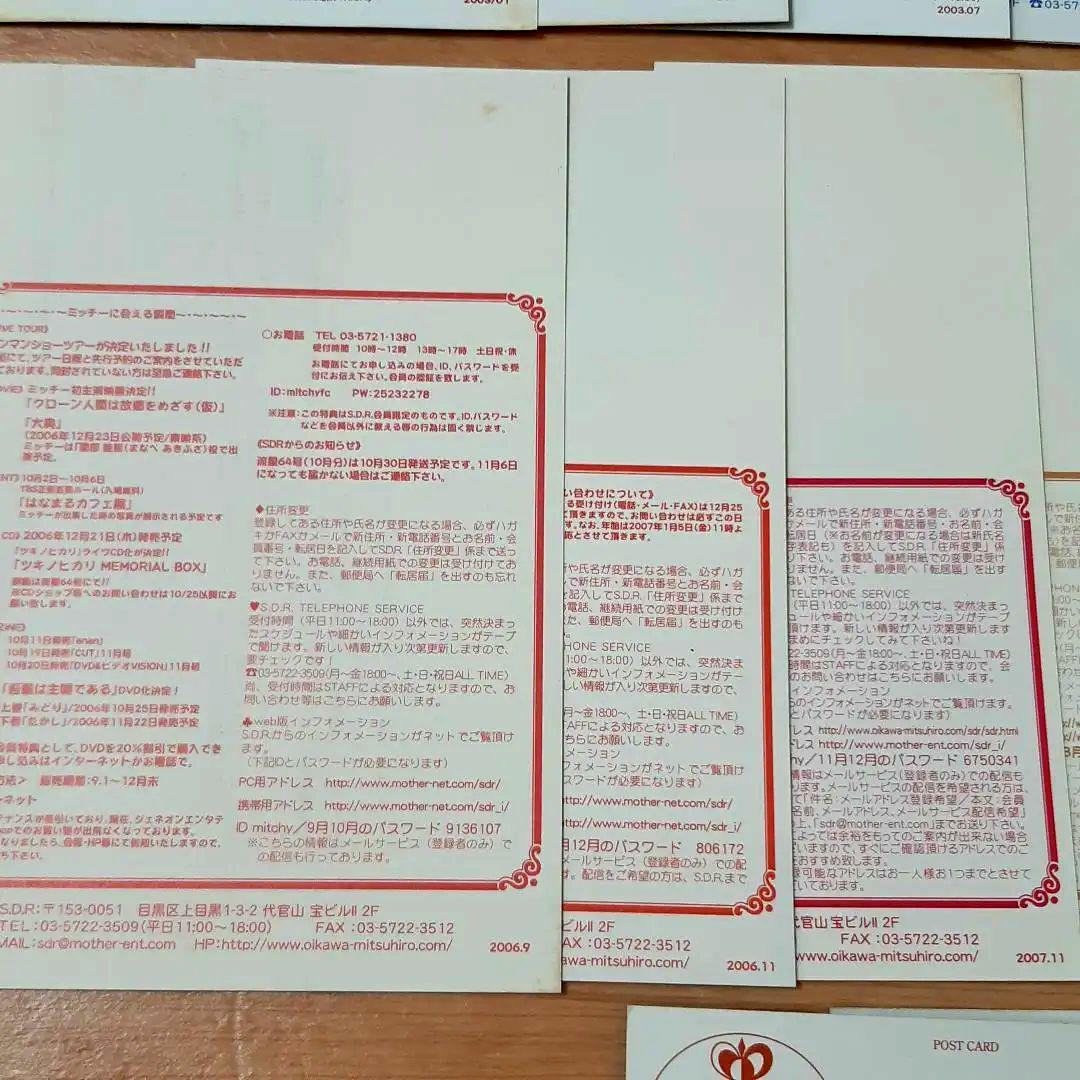 2003/01
2003.07
☎03-57
~ミッチーに会える瞬間~
VE TOUR》
ンマンショーツアーが決定いたしました!!
にて、ツアー日程と先行予約のご案内をさせていただ
ております。同封されていない方は至急ご連絡下さい。
ミッチー初主演映画決定!!
「クローン人間は故郷をめざす(仮)」
「大奥」
(2006年12月23日公開予定/東映系)
ミッチーは「間部 詮房(まなべ あきふさ)役で出
演予定。
10月2日〜10月6日
「はなまるカフェ展」
ミッチーが出演した時の写真が展示される予定です
2006年12月21日(木)発売予定
「ツキノヒカリ」ライヴCD化が決定!!
「ツキノヒカリ MEMORIAL BOX」
詳細は流星64号にて!!
※CDショップ等へのお問い合わせは10/25以降にお
願い致します。
10月11日発売「anan」
10月19日発売「CUT」11月号
10月20日発売「DVD&ビデオVISION」11月号
「吾輩は主婦である」DVD化決定!
上巻「みどり」/2006年10月25日発売予定
下巻「たかし」/2006年11月22日発売予定
会員特典として、DVDを20%割引で購入でき
申し込みはインターネットかお電話で。
販売期間:9.1〜12月末
ネット
ナンスが長引いており、現在、ジェネオンエンタテ
opでのお買い物が出来なくなっております。
なりましたら、会報・HP等にて告知いたしますので、
ち下さい。
○お電話 TEL 03-5721-1380
受付時間 10時〜12時 13時〜17時 土日祝・休
お電話にてお申し込みの場合、ID、パスワードを受
付にお伝え下さい。会員の確証を致します。
ID:mitchyfc PW:25232278
※注意:この特典はS.D.R.会員限定のものです。ID、パスワード
などを会員以外に教える等の行為は固く禁じます。
《SDRからのお知らせ》
流星64号(10月分)は10月30日発送予定です。11月6日
になっても届かない場合はご連絡下さい。
◆住所変更
登録してある住所や氏名が変更になる場合、必ずハガ
キかFAXかメールで新住所・新電話番号とお名前・会
員番号・転居日を記入してSDR「住所変更」係まで送っ
て下さい。お電話、継続用紙での変更は受け付けてお
りません。また、郵便局へ「転居届」を出すのも忘れ
ないで下さい。
♥S.D.R. TELEPHONE SERVICE
受付時間(平日11:00〜18:00)以外では、突然決まっ
たスケジュールや細かいインフォメーションがテープ
で聞けます。新しい情報が入り次第更新しますので、
要チェックです!
☎03-5722-3509(月〜金18:00〜、土・日・祝日ALL TIME)
尚、受付時間はSTAFFによる対応となりますので、お
問い合わせ等はこちらにお願いします。
♣web版インフォメーション
S.D.R.からのインフォメーションがネットでご覧頂け
ます。
(下記IDとパスワードが必要になります)
PC用アドレス http://www.mother-net.com/sdr/
携帯用アドレス http://www.mother-net.com/sdr_i/
ID mitchy/9月10月のパスワード 9136107
※こちらの情報はメールサービス(登録者のみ)で
の配信も行っております。
S.D.R:〒153-0051 目黒区上目黒1-3-2 代官山 宝ビルII 2F
TEL:03-5722-3509(平日11:00〜18:00) FAX:03-5722-3512
MAIL:sdr@mother-ent.com HP:http://www.oikawa-mitsuhiro.com/ 2006.9
い合わせについて》
る受け付け(電話・メール・FAX)は12月25
て頂きますので、お問い合わせは必ずこの日
す。なお、年始は2007年1月5日(金)11時よ
応とさせて頂きます。
所や氏名が変更になる場合、必ずハガ
で新住所・新電話番号とお名前・会
を記入してS.D.R.「住所変更」係まで
お電話、継続用紙での変更は受け付け
た、郵便局へ「転居届」を出すのも
HONE SERVICE
1:00〜18:00)以外では、突然決ま
細かいインフォメーションがテープ
しい情報が入り次第更新しますので、
月〜金18:00〜、土・日・祝日ALL TIME)
AFFによる対応となりますので、お
ちらにお願いします。
メーション
フォメーションがネットでご覧頂け
スワードが必要になります)
http://www.mother-net.com/sdr/
http://www.mother-net.com/sdr_i/
月12月のパスワード 806172
メールサービス(登録者のみ)での配
す。配信をご希望の方は、S.D.R.まで
ビルII 2F
FAX:03-5722-3512
kawa-mitsuhiro.com/ 2006.11
ある住所や氏名が変更になる場合、必ずハガ
かメールで新住所・新電話番号・お名前・会
転居日(※お名前が変更になる場合は新氏名
字表記も)を記入してS.D.R.「住所変更」係
下さい。お電話、継続用紙での変更は受け付
ません。また、郵便局へ「転居届」を出す
ないで下さい。
TELEPHONE SERVICE
(平日11:00〜18:00)以外では、突然決まっ
ュールや細かいインフォメーションがテープ
頂けます。新しい情報が入り次第更新します
まめにチェックしてみて下さいね!
22-3509(月〜金18:00〜、土・日・祝日ALL TIME)
時間はSTAFFによる対応となりますので、会
のお問い合わせはこちらにお願いします。
インフォメーション
らのインフォメーションがネットでご覧頂けます。
とパスワードが必要になります)
ドレス http://www.oikawa-mitsuhiro.com/sdr/sdr.html
レス http://www.mother-net.com/sdr_i/
hy/11月12月のパスワード 6750341
情報はメールサービス(登録者のみ)での配信も
ます。メールサービスの配信を希望される方は、
て「件名:メールアドレス登録希望/本文:会員
名前、メールアドレス、メールサービス配信希望」
の上、「sdr@mother-ent.com」までお送り下さい。
よっては会格をもってのご案内が出来ない場合
いますので、すぐにご確認頂けるアドレスでのご
をおすすめ致します。
録可能なアドレスはお一人様お1つまでとさせて
ております。
代官山 宝ビルII 2F
FAX:03-5722-3512
www.oikawa-mitsuhiro.com/ 2007.11
POST CARD